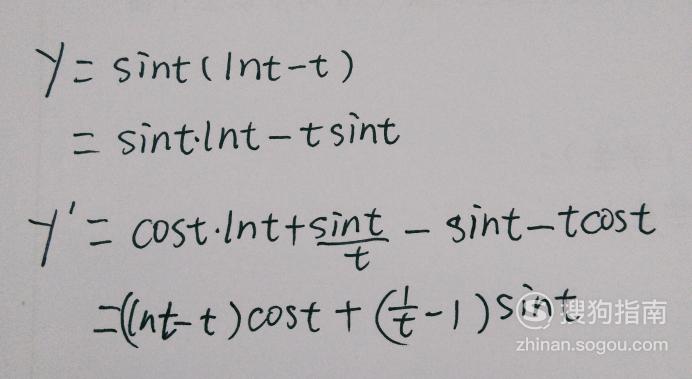 y = sint(lnt-t)
= sint·lnt - tsint
y' = cost·lnt + sint/t - sint - tcost
= (lnt-t)cost + (1/t - 1)sint
搜狗指南
zhinan.sogou.com